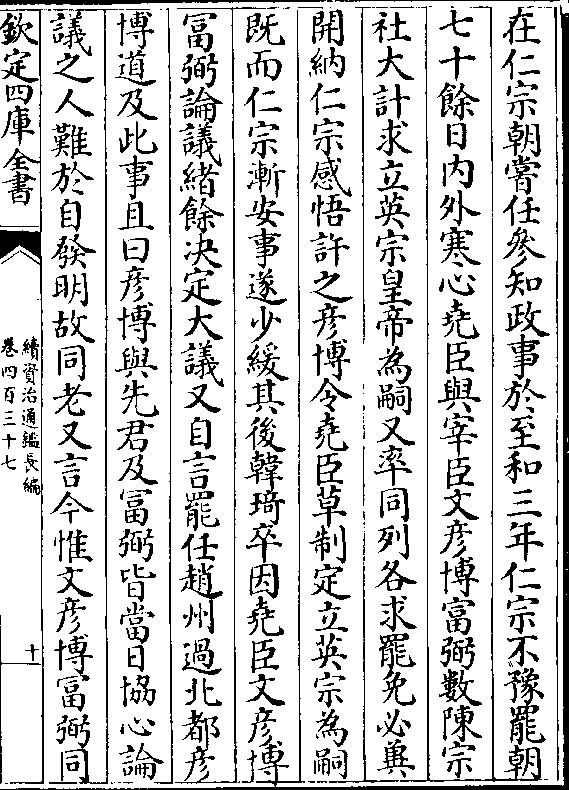 在仁宗朝嘗任叅知政事於至和三年仁宗不豫罷朝
七十餘日内外寒心堯臣與宰臣文彦博富弼數陳宗
社大計求立英宗皇帝為嗣又率同列各求罷免必兾
開納仁宗感悟許之彦博令堯臣草制定立英宗為嗣
既而仁宗漸安事遂少緩其後韓琦卒因堯臣文彦博
冨弼論議緒餘决定大議又自言罷任趙州過北都彦
博道及此事且曰彦博與先君及冨弼皆當日協心論
議之人難於自發明故同老又言今惟文彦博冨弼同
欽定四庫全書
續資治通鑑長編
卷四百三十七
十